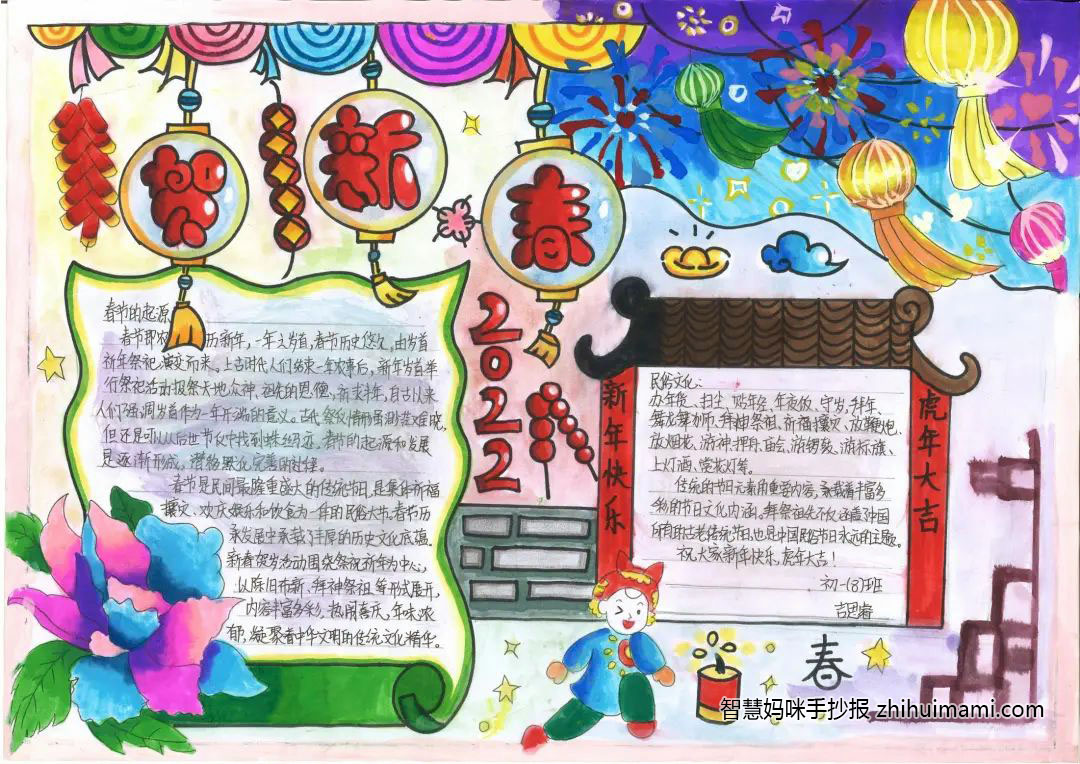 贺
新
春
2022
春节的起源
春节即农历新年，一年之岁首，春节历史悠久，由岁首
祈年祭祀演变而来。上古时代人们结束一年农事后，新年岁首举
行祭祀活动报祭天地众神、祖先的恩德，祈求丰年，自古以来
人们强调岁首作为一年开端的意义。古代祭仪情形虽渺茫难晓，
但还是可以从后世节仪中找到蛛丝马迹。春节的起源和发展
是逐渐形成，潜移默化完善的过程。
春节是民间最隆重盛大的传统节日，是集祈福
攘灾、欢庆娱乐和饮食为一年的民俗大节。春节历
史发展中承载了丰厚的历史文化底蕴。
新春贺岁活动围绕祭祝祈年为中心，
以除旧布新、拜神祭祖等形式展开，
内容丰富多彩，热闹喜庆，年味浓
郁，凝聚着中华文明的传统文化精华。
新年快乐
民俗文化：
办年货、扫尘、贴年红、年夜饭、守岁、拜年、
舞龙舞狮、拜神祭祖、祈福攘灾、放鞭炮、
放烟花、游神、押舟、庙会、游锣鼓、游标旗、
上灯酒、赏花灯等。
传统的节日元素用重要内容，承载着丰富多
彩的节日文化内涵。拜祭祖先不仅涵盖中国
所有的古老传统节日，也是中国民俗节日永远的主题。
祝大家新年快乐，虎年大吉！
初一(3)班
吉思睿
虎年大吉
春
智慧妈咪手抄报 zhihuimami.com